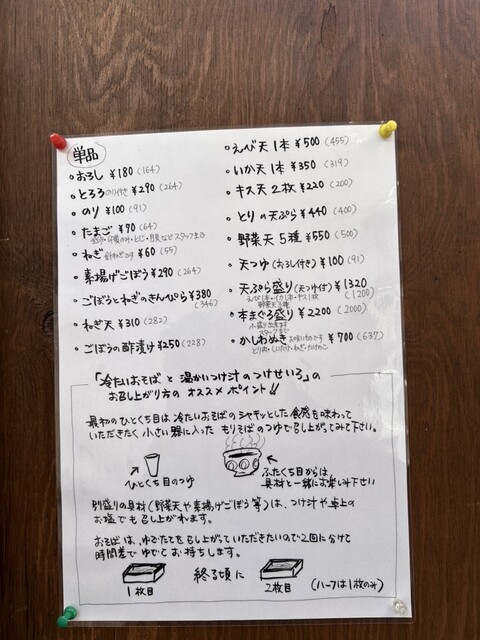 単品
・おろし ¥180 (164)
・とろろ のり付き ¥290 (264)
・のり ¥100 (91)
・たまご ¥70 (64)
・ねぎ ¥60 (55)
・素揚げごぼう ¥290 (264)
・ごぼうとねぎのきんぴら ¥380 (346)
・ねぎ天 ¥310 (282)
・ごぼうの酢漬け ¥250 (228)
・えび天 1本 ¥500 (455)
・いか天 1本 ¥350 (319)
・キス天 2枚 ¥220 (200)
・とりの天ぷら ¥440 (400)
・野菜天 5種 ¥550 (500)
・天つゆ (おろし付き) ¥100 (91)
・天ぷら盛り (天つゆ付) ¥1320 (1200)
えび1本・イカ1本・キス1枚
野菜天3種
・本まぐろ盛り ¥2200 (2000)
小盛り出来ます
スタッフまで
・かしわぬき お吸い物です ¥700 (637)
とり肉・しいたけ・ねぎ・たけのこ
「冷たいおそばと温かいつけ汁のつけせいろ」の
お召し上がり方のオススメポイント!!
最初のひとくち目は、冷たいおそばのシャキッとした食感を味わって
いただきたく小さい器に入ったもりそばのつゆで召し上がってみて下さい。
ひとくち目のつゆ
ふたくち目からは、
具材と一緒にお楽しみ下さい
別盛りの具材(野菜天や素揚げごぼう等)は、つけ汁や卓上の
お塩でも召し上がれます。
おそばは、ゆでたてを召し上がっていただきたいので2回に分けて
時間差でゆでてお持ちします。
1枚目
終る頃に
2枚目
(ハーフは1枚のみ)